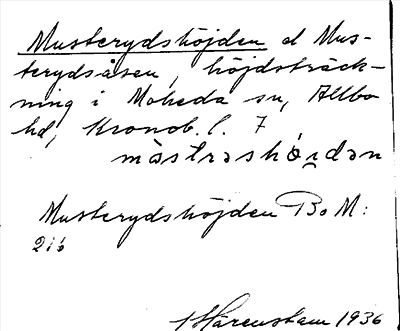 Musterydshöjden el Mus-
terydsåsen, höjdsträck-
ning i Moheda sn, Allbo
hd, Kronob. l. 7
måstrəshöi̯dən
Musterydshöjden Bo M:
2:6
Härenstam 1936